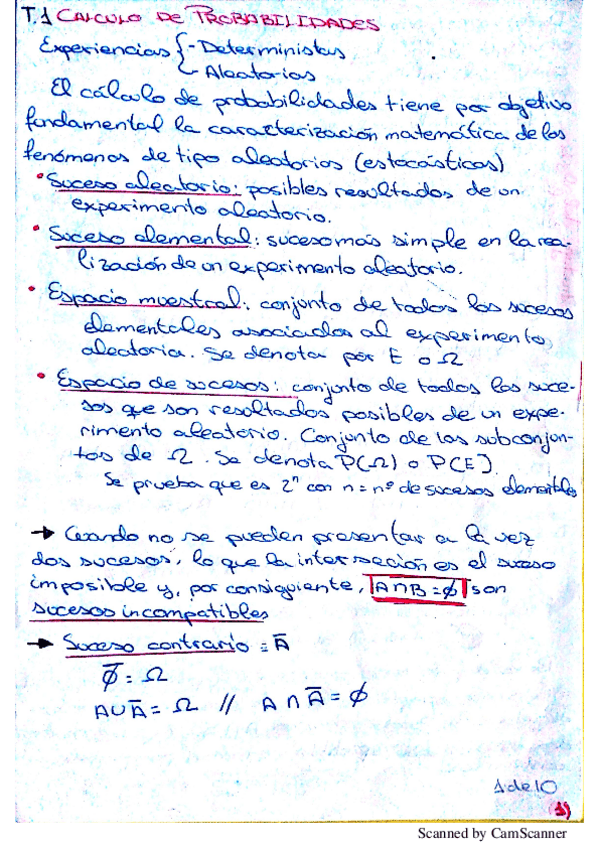 T.1 CALCULO DE PROBABILIDADES
Experiencias { - Deterministas
- Aleatorias
El cálculo de probabilidades tiene por objetivo
fundamental la caracterización matemática de los
fenómenos de tipo aleatorios (estocásticos)
• Suceso aleatorio: posibles resultados de un
experimento aleatorio.
• Suceso elemental: suceso más simple en la rea-
lización de un experimento aleatorio.
• Espacio muestral: conjunto de todos los sucesos
elementales asociados al experimento
aleatorio. Se denota por E o Ω
• Espacio de sucesos: conjunto de todos los suce-
sos que son resultados posibles de un expe-
rimento aleatorio. Conjunto de los subconjun-
tos de Ω. Se denota P(Ω) o P(E).
Se prueba que es 2ⁿ con n = nº de sucesos elementales
→ Cuando no se pueden presentar a la vez
dos sucesos, lo que la intersección es el suceso
imposible y, por consiguiente, A∩B = ϕ son
sucesos incompatibles
→ Suceso contrario = A̅
ϕ̅ = Ω
A∪A̅ = Ω // A ∩ A̅ = ϕ
1 de 10
1)
Scanned by CamScanner